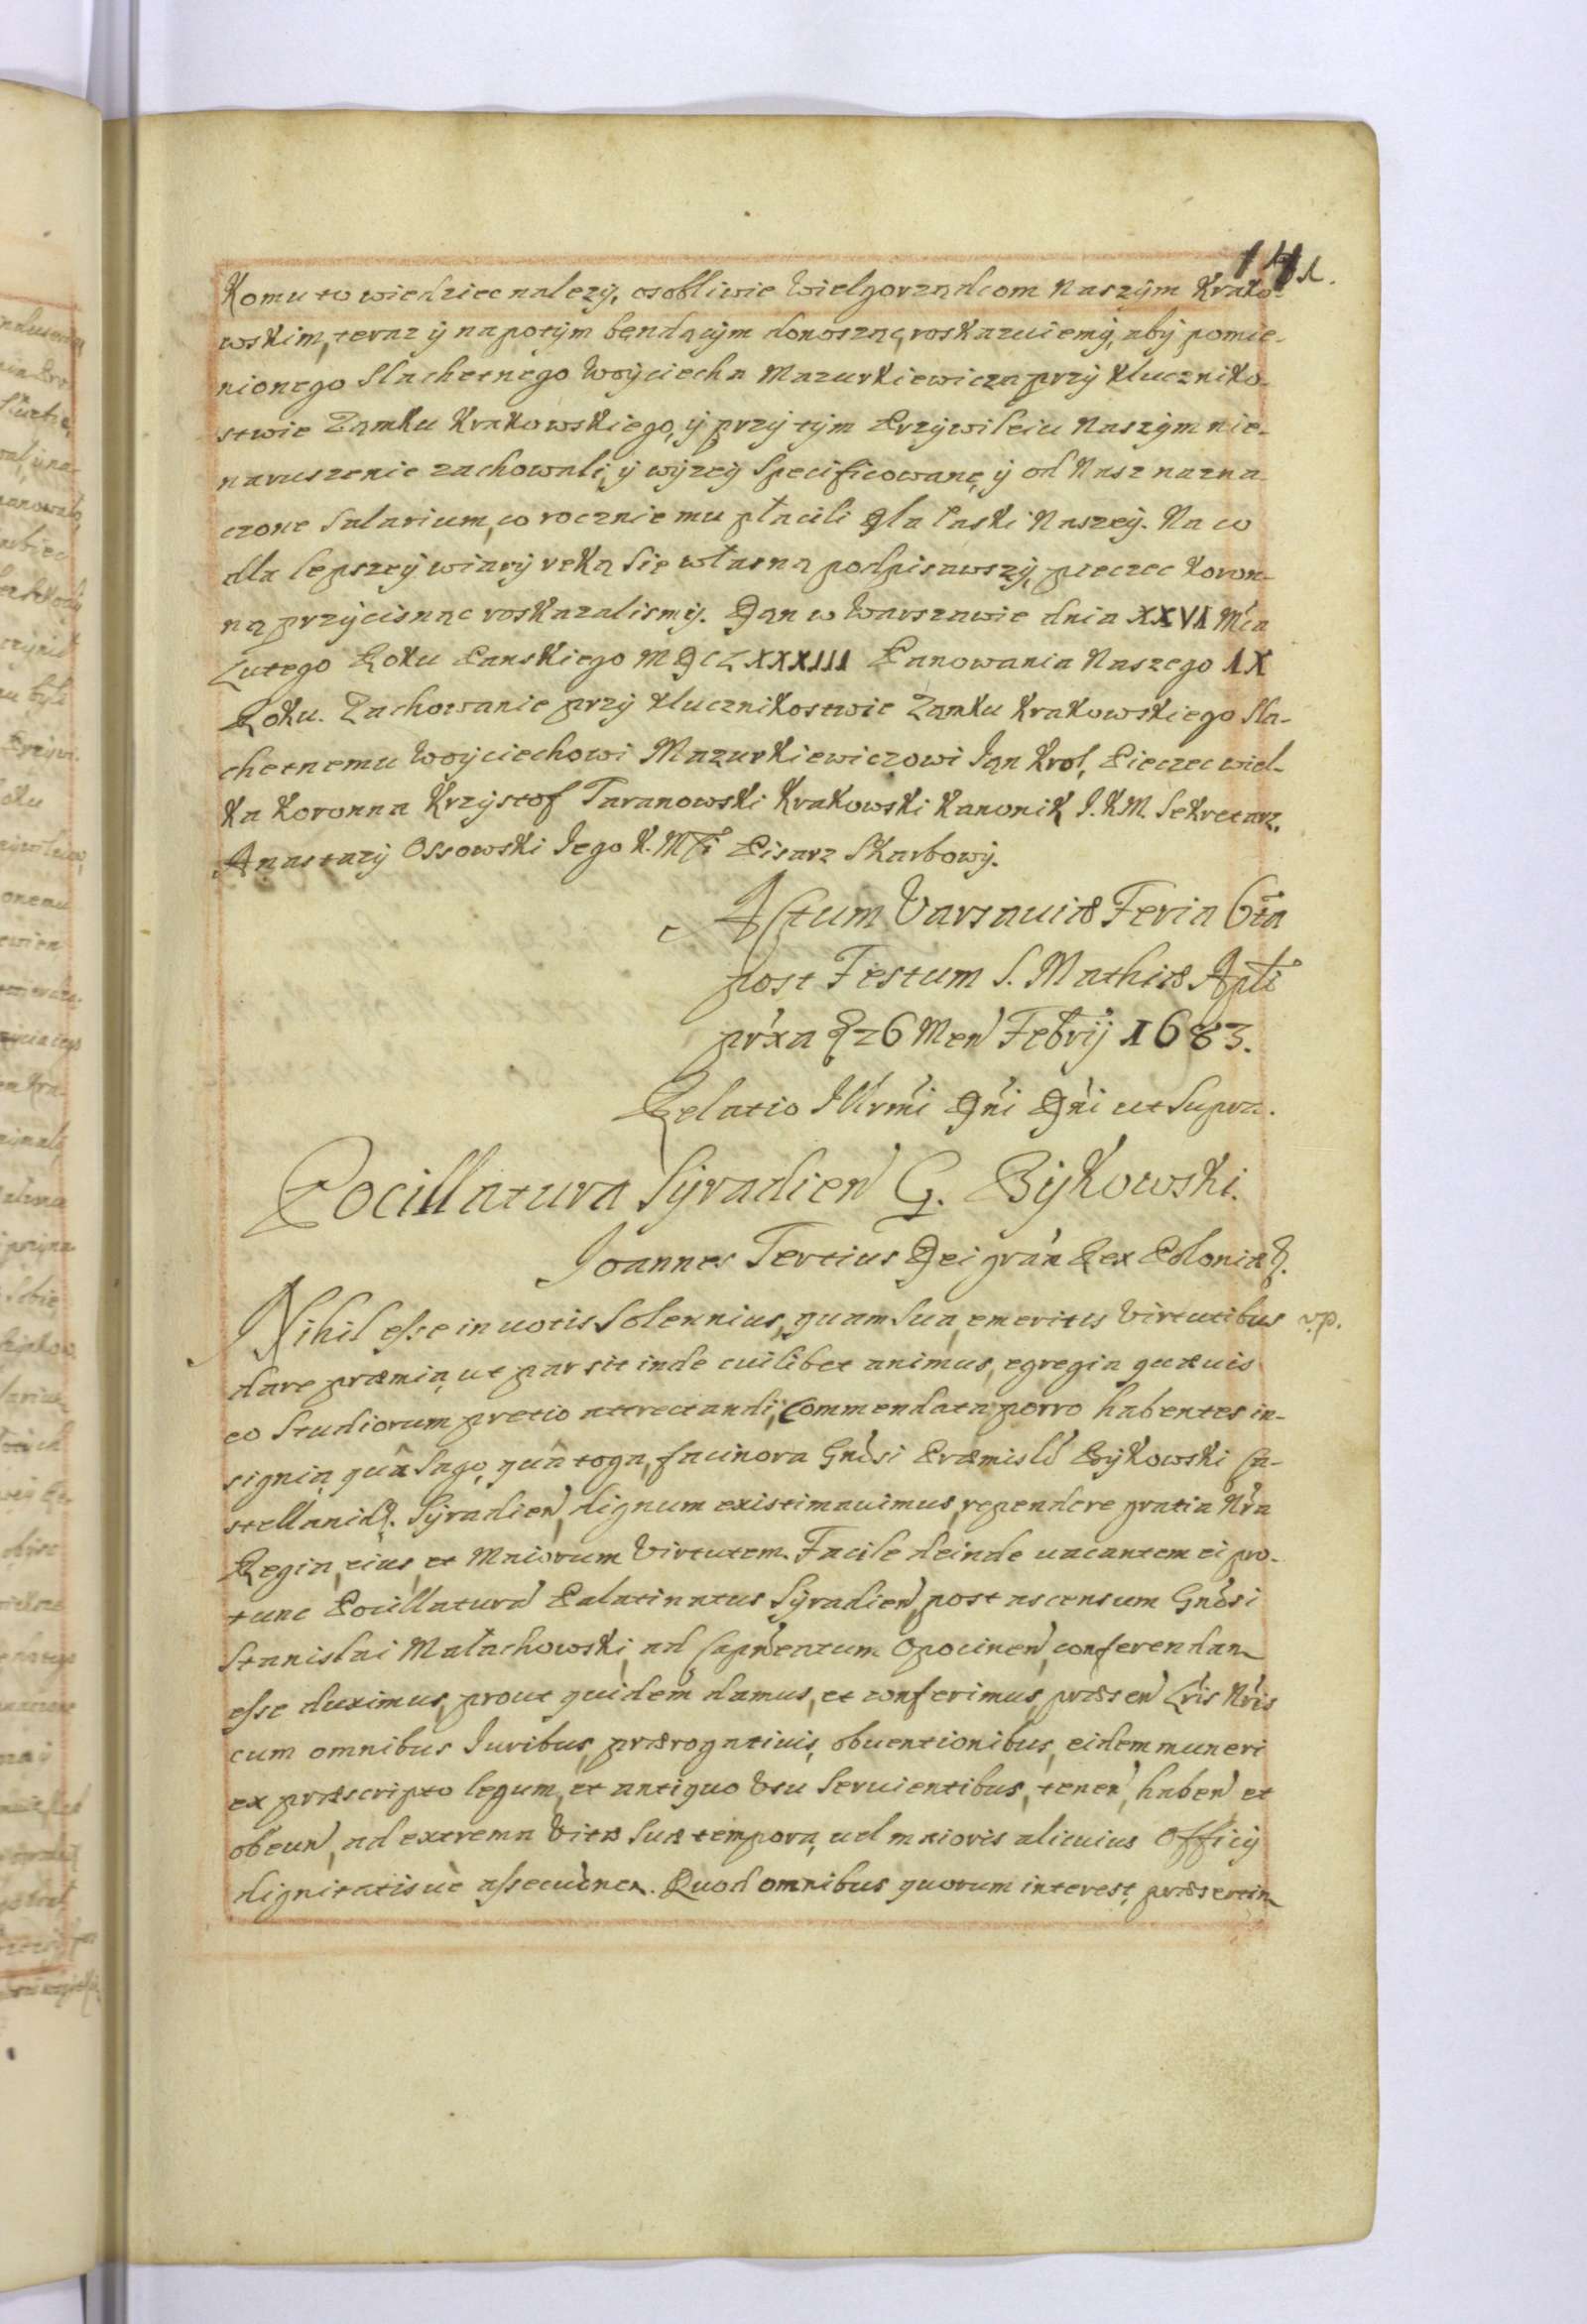 141.
Komu to wiedziec nalezÿ, osobliwie Wielgorządcom Naszÿm Krako-
wskim, teraz ÿ na potÿm będącÿm donosząc, roskazuiemÿ, abÿ pomie-
nionego Slachetnego Woÿciecha Mazurkiewicza przÿ kluczniko-
stwie Zamku Krakowskiego, ÿ przÿ tÿm Przÿwileiu Naszÿm nie-
naruszenie zachowali, ÿ wÿzeÿ Specificowane, ÿ od Nasz nazna-
czone Salarium, co rocznie mu płacili dla łaski Naszeÿ. Na co
dla lepszeÿ wiarÿ ręką Się własną podpisawszÿ, pieczec koron-
ną przÿcisnąc roskazalismÿ. Dan w Warszawie dnia XXVI Mca
Lutego Roku Panskiego MDCLXXXIII Panowania Naszego IX
Roku. Zachowanie przÿ klucznikostwie Zamku Krakowskiego Sla-
chetnemu Woÿciechowi Mazurkiewiczowi Jan Krol, Pieczec wiel-
ka koronna Krzÿstof Taranowski Krakowski Kanonik J.K.M. Sekretarz,
Anastazÿ Ossowski Jego K. Mśi Pisarz Skarbowÿ.
Actum Varsauiæ Feria 6ta
post Festum S. Mathiæ Apli
prxa d. 26 Men Febrÿ 1683.
Relatio Illrmi Dni Dni ut supra.
Pocillatura Sÿradien G. Bÿkowski.
Joannes Tertius Dei gran Rex Poloniæ &.
Nihil esse in uotis Solennius, quam sua emeritis Virtutibus v.p.
dare præmia, ut par sit inde cuilibet animus, egregia quæuis
eo Studiorum pretio attrectandi, Commendata porro habentes in-
signia, quâ Sago, quâ toga, facinora Gnosi Præmisli Bÿkowski Ca-
stellanid. Sÿradien, dignum existimauimus, rependere gratia Nra
Regia, eius, et Maiorum Virtutem. Facile deinde uacantem ei pro-
tunc Pocillatura Palatinatus Sÿradien, post ascensum Gnosi
Stanislai Małachowski, ad Capneatum Opocinen, conferendam
esse duximus, prout quidem damus, et conferimus, præsen Lris Nris
cum omnibus Iuribus, prærogatiuis, obuentionibus, eidem muneri
ex præscripto legum, et antiquo Vsu Seruientibus, tenen, haben et
obeun, ad extrema Vitæ Suæ tempora, uel maioris alicuius Officÿ
dignitatisuè assecuõnem. Quod omnibus quorum interest, præsertim